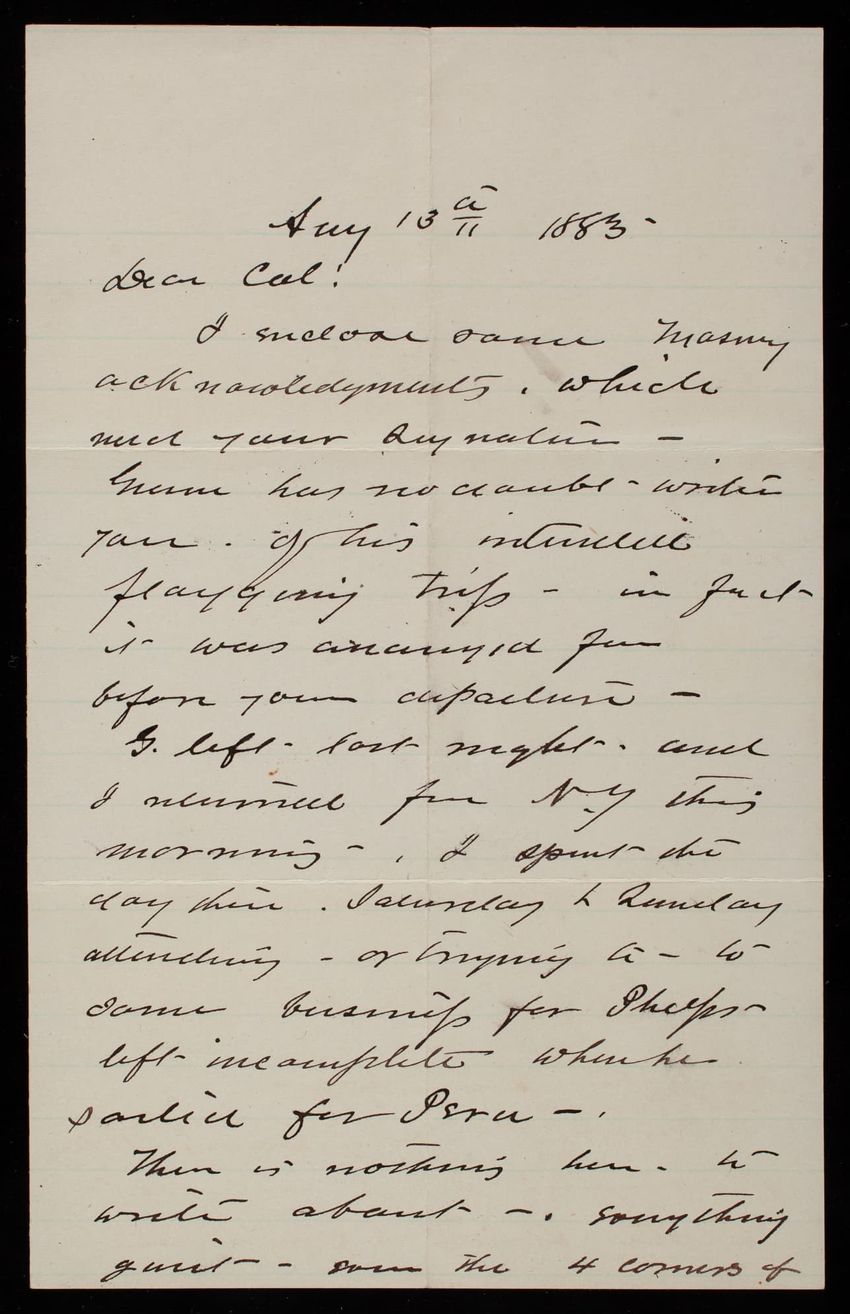 Aug 13th 1883-
Dear Col!
I enclose some Masonry
acknowledgments, which
need your signature -
Green has no doubt - written
you. of his intended
flagging trip - in fact
it was arranged far
before your departure -
G. left - last night - and
I returned from N-Y this
morning - , I spent the
day there. Saturday & Sunday
attending - or trying to - to
some business for Phelps -
left incomplete when he
sailed for Peru - .
There is nothing here - to
write about - . everything
quiet - save the 4 corners of